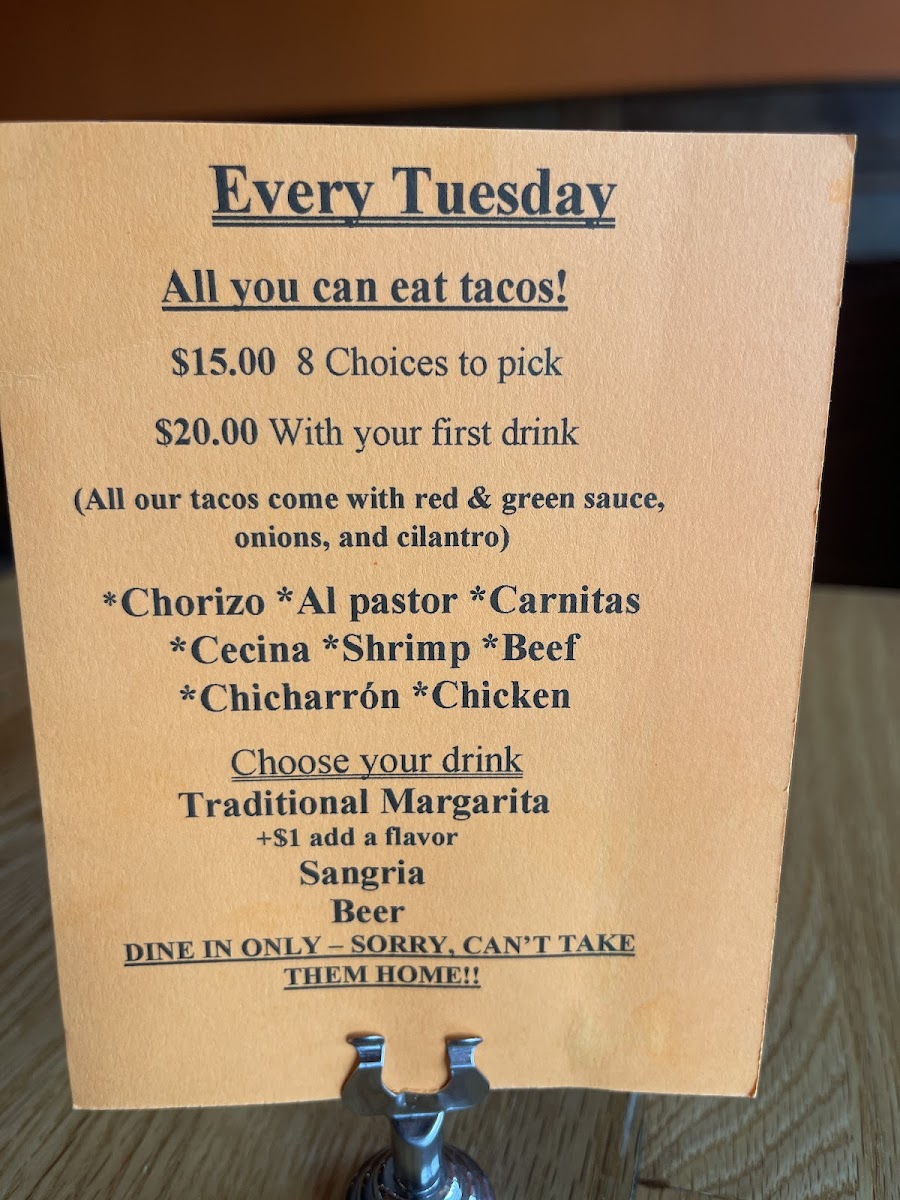 Every Tuesday
All you can eat tacos!
$15.00 8 Choices to pick
$20.00 With your first drink
(All our tacos come with red & green sauce,
onions, and cilantro)
*Chorizo *Al pastor *Carnitas
*Cecina *Shrimp *Beef
*Chicharrón *Chicken
Choose your drink
Traditional Margarita
+$1 add a flavor
Sangria
Beer
DINE IN ONLY – SORRY, CAN'T TAKE
THEM HOME!!